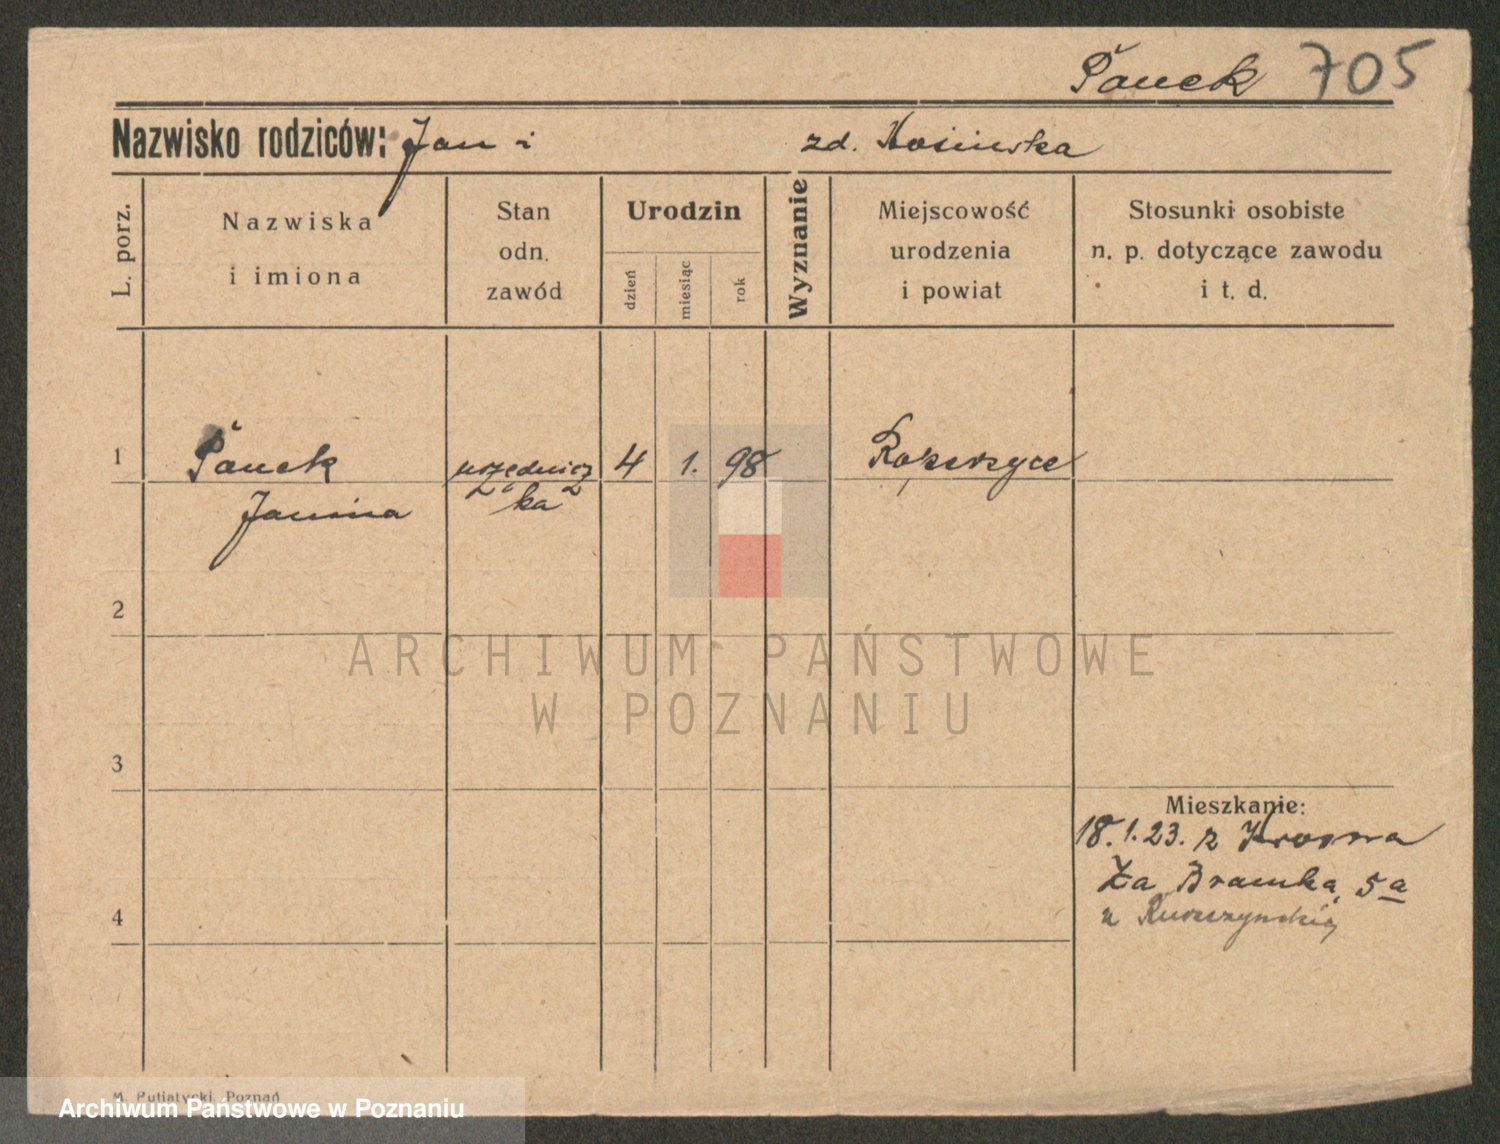 Panek 705
Nazwisko rodziców: Jan i zd. Kosińska
L. porz.
Nazwiska i imiona
Stan odn. zawód
Urodzin
dzień
miesiąc
rok
Wyznanie
Miejscowość urodzenia i powiat
Stosunki osobiste n. p. dotyczące zawodu i t. d.
1 Panek urzędnicz 4 1. 98
Janina ka
2
ARCHIWUM PAŃSTWOWE
W POZNANIU
3
Mieszkanie:
18.1.23. z Krosna
Za Bramką 5a
4 u
M. Putiatycki, Poznań
Archiwum Państwowe w Poznaniu